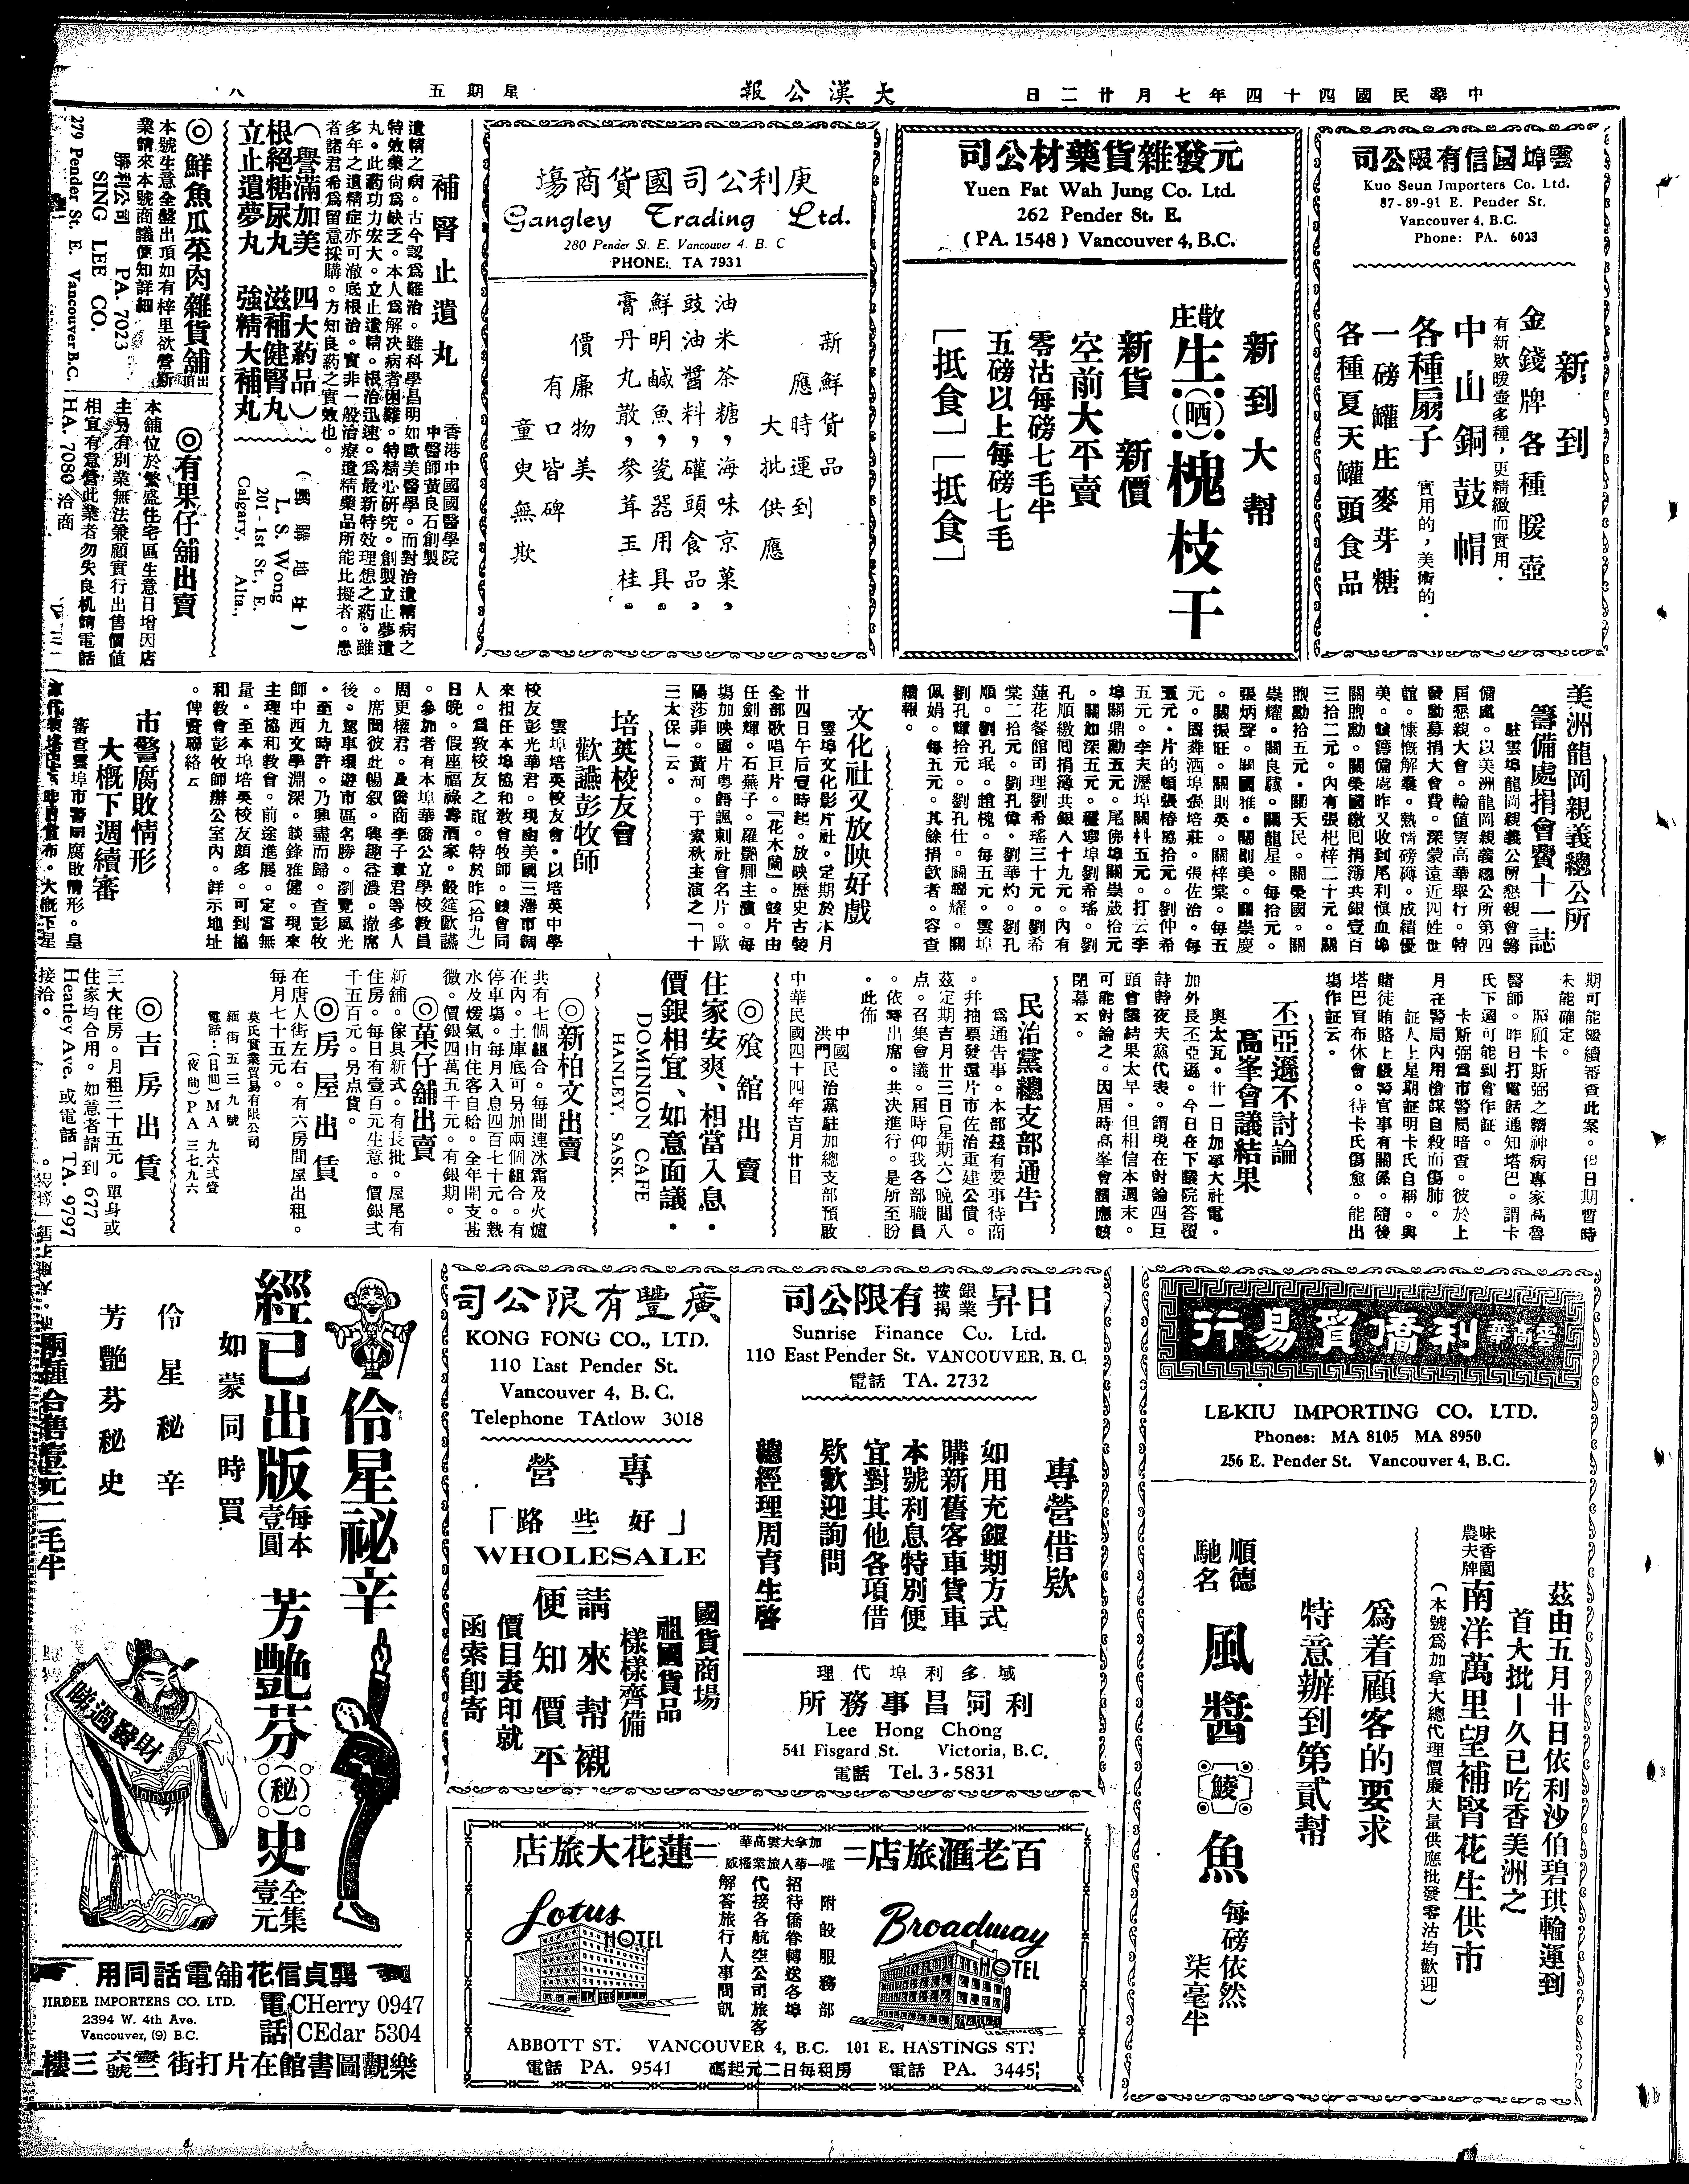 中華民國四十四年七月廿二日
大漢公報
星期五
八
雲埠國信有限公司
Kuo Seun Importers Co. Ltd.
87-89-91 E. Pender St.
Vancouver 4, B.C.
Phone: PA. 6023
新到
金錢牌各種暖壺
有新欵暖壺多種，更精緻而實用．
中山銅鼓帽
各種扇子
實用的，美術的．
一磅罐庄麥芽糖
各種夏天罐頭食品
元發雜貨藥材公司
Yuen Fat Wah Jung Co. Ltd.
262 Pender St. E.
(PA. 1548) Vancouver 4, B.C.
新到大幫
散庄
生(晒)槐枝干
新貨 新價
空前大平賣
零沽每磅七毛半
五磅以上每磅七毛
[抵食] [抵食]
庚利公司國貨商塲
Gangley Trading Ltd.
280 Pender St. E. Vancouver 4. B. C
PHONE: TA 7931
新鮮貨品
應時運到
大批供應
油米茶糖，海味京菓，
豉油醬料，礶頭食品，
鮮明鹹魚，瓷器用具。
膏丹丸散，參茸玉桂。
價廉物美
有口皆碑
童叟無欺
補腎止遺丸
香港中國國醫學院
中醫師黃良石創製
遺精之病。古今認爲難治。雖科學昌明如歐美醫學。而對治遺精病之
特效藥尙爲缺乏。本人爲解决病者困難。特精心研究。創製立止夢遺
丸。此葯功力宏大。立止遺精。根治迅速。爲最新特效理想之葯。雖
多年之遺精症亦可澈底根治。實非一般治療遺精藥品所能比擬者。患
者諸君希爲留意採購。方知良葯之實效也。
(譽滿加美 四大葯品)
根絕糖尿丸 滋補健腎丸
立止遺夢丸 強精大補丸
L. S. Wong
201-1st St., E.
Calgary, Alta.,
◎鮮魚瓜菜肉雜貨舖出頂
本號生意全盤出頂如有梓里欲營斯
業請來本號商議便知詳細
勝利公司 PA. 7023
SING LEE CO.
279 Pender St. E. Vancouver B.C.
◎有果仔舖出賣
本舖位於繁盛住宅區生意日增因店
主另有別業無法兼顧實行出售價值
相宜有意營此業者勿失良机請電話
HA. 7080 洽商
美洲龍岡親義總公所
籌備處捐會費十一誌
駐雲埠龍岡親義公所懇親會籌
備處。以美洲龍岡親義總公所第四
屆懇親大會。輪値雲高華舉行。特
發動募捐大會費。深蒙遠近四姓世
誼。慷慨解囊。熱情磅礡。成績優
美。該籌備處昨又收到尾利愼血埠
關煦勳。關榮國繳囘捐簿共銀壹百
三拾二元。內有張杞梓二十元。關
煦勳拾五元。關天民。關榮國。關
崇耀。關良驥。關龍星。每拾元。
張炳聲。關國雅。關則美。關崇慶
。關振旺。關則英。關梓棠。每五
元。
孔順繳囘捐簿共銀八十九元。內有
蓮花餐館司理劉希瑤三十元。劉希
棠二拾元。劉孔偉。劉華灼。劉孔
順。劉孔珉。趙槐。每五元。雲埠
劉孔輝拾元。劉孔仕。關聯耀。關
佩娟。每五元。其餘捐欵者。容查
續報。
文化社又放映好戲
雲埠文化影片社。定期於本月
廿四日午后壹時起。放映歷史古裝
全部歌唱巨片。『花木蘭』。該片由
任劍輝。石燕子。羅艷卿主演。每
塲加映國片粤語諷刺社會名片。歐
陽莎菲。黃河。于素秋主演之「十
三太保」云。
培英校友會
歡讌彭牧師
雲埠培英校友會。以培英中學
校友彭光華君。現由美國三藩市調
來担任本埠協和敎會牧師。該會同
人。爲敎校友之誼。特於昨(拾九)
日晚。假座福祿壽酒家。設筵歡讌
。參加者有本埠華僑公立學校敎員
周更權君。及僑商李子章君等多人
。席間彼此暢叙。興趣益濃。撤席
後。駕車環遊市區名勝。瀏覽風光
。至九時許。乃興盡而歸。查彭牧
師中西文學淵深。談鋒雅健。現來
主理協和敎會。前途進展。定當無
量。至本埠培英校友頗多。可到協
和敎會彭牧師辦公室內。詳示地址
。俾資聯絡云
市警腐敗情形
大概下週續審
審查雲埠市警局腐敗情形。皇
期可能繼續審查此案。但日期暫時
未能確定。
照顧卡斯弼之精神病專家高魯
醫師。昨日打電話通知塔巴。謂卡
氏下週可能到會作証。
卡斯弼爲市警局暗查。彼於上
月在警局內用槍謀自殺而傷肺。
証人上星期証明卡氏自稱。與
賭徒賄賂上級警官事有關係。隨後
塔巴宣布休會。待卡氏傷愈。能出
塲作証云。
丕亞遜不討論
高峯會議結果
奧太瓦。廿一日加拿大社電。
加外長丕亞遜。今日在下議院答覆
詩詩夜夫黨代表。謂現在討論四巨
頭會議結果太早。但相信本週末。
可能討論之。因屆時高峯會議應該
閉幕云。
民治黨總支部通告
爲通告事。本部茲有要事待商
。幷抽票發還片市佐治重建公債。
茲定期吉月廿三日(星期六)晚間八
点。召集會議。屆時仰我各部職員
。依時出席。共决進行。是所至盼
。此佈
中國洪門民治黨駐加總支部預啟
中華民國四十四年吉月廿日
◎飱舘出賣
住家安爽、相當入息．
價銀相宜、如意面議．
DOMINION CAFE
HANLEY, SASK.
◎新柏文出賣
共有七個組合。每間連冰霜及火爐
在內。土庫底可另加兩個組合。有
停車塲。每月入息四百七十元。熱
水及煖氣由住客自給。全年開支甚
微。價銀四萬五千元。有銀期。
◎菓仔舖出賣
新舖。傢具新式。有長批。屋尾有
住房。每日有壹百元生意。價銀弍
千五百元。另点貨。
◎房屋出賃
在唐人街左右。有六房間屋出租。
每月七十五元。
莫氏實業貿易有限公司
緬街五三九號
電話：(日間)MA 九六弍壹
(夜間)PA 三七九六
◎吉房出賃
三大住房。月租三十五元。單身或
住家均合用。如意者請到 677
Heatley Ave. 或電話 TA. 9797
接洽。
雲高華利僑貿易行
LE-KIU IMPORTING CO. LTD.
Phones: MA 8105 MA 8950
256 E. Pender St. Vancouver 4, B.C.
茲由五月廿日依利沙伯碧琪輪運到
首大批—久已吃香美洲之
味香園
農夫牌
南洋萬里望補腎花生供市
(本號爲加拿大總代理價廉大量供應批發零沽均歡迎)
爲着顧客的要求
特意辦到第貳幫
順德馳名
風醬鯪魚
每磅依然
柒毫半
日昇銀業按揭有限公司
Sunrise Finance Co. Ltd.
110 East Pender St. VANCOUVER, B. C.
電話 TA. 2732
專營借欵
如用充銀期方式
購新舊客車貨車
本號利息特別便
宜對其他各項借
欵歡迎詢問
總經理周育生啓
域多利埠代理
利同昌事務所
Lee Hong Chong
541 Fisgard St. Victoria, B.C.
電話 Tel. 3-5831
廣豐有限公司
KONG FONG CO., LTD.
110 East Pender St.
Vancouver 4, B. C.
Telephone TAtlow 3018
專營
「好些路」
WHOLESALE
國貨商塲
祖國貨品
樣樣齊備
請來幫襯
便知價平
價目表印就
函索即寄
百老滙旅店=加拿大雲高華唯一華人旅業權威=蓮花大旅店
Broadway HOTEL
Lotus HOTEL
附設服務部
招待僑眷轉送各埠
代接各航空公司旅客
解答旅行人事問訊
PENDER
ABBOTT
COLUMBIA
HASTINGS
ABBOTT ST. VANCOUVER 4, B.C. 101 E. HASTINGS ST.
電話 PA. 9541 房租每日二元起碼 電話 PA. 3445
伶星祕辛
經已出版
每本壹圓
芳艷芬(秘)史
全集壹元
如蒙同時買
伶星秘辛
芳艷芬秘史
兩種合售壹元二毛半
睇過發財
龔貞信花舖電話同用
JIRDEE IMPORTERS CO. LTD.
2394 W. 4th Ave.
Vancouver, (9) B.C.
電話
CHerry 0947
CEdar 5304
樂觀圖書館在片打街壹三六號三樓